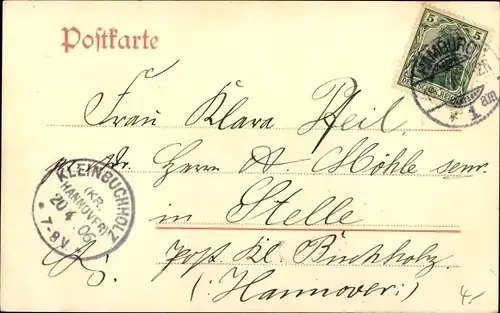 Postkarte
5
HAMBURG
* 1
am
Frau Klara Pfeil,
pr. Adr. Herrn A. Möhle senr.
in Stelle
Post Kl. Buchholz
(:Hannover:)
KLEINBUCHHOLZ
(KR.
HANNOVER)
20 4 06
* 7-8 V.
4,-